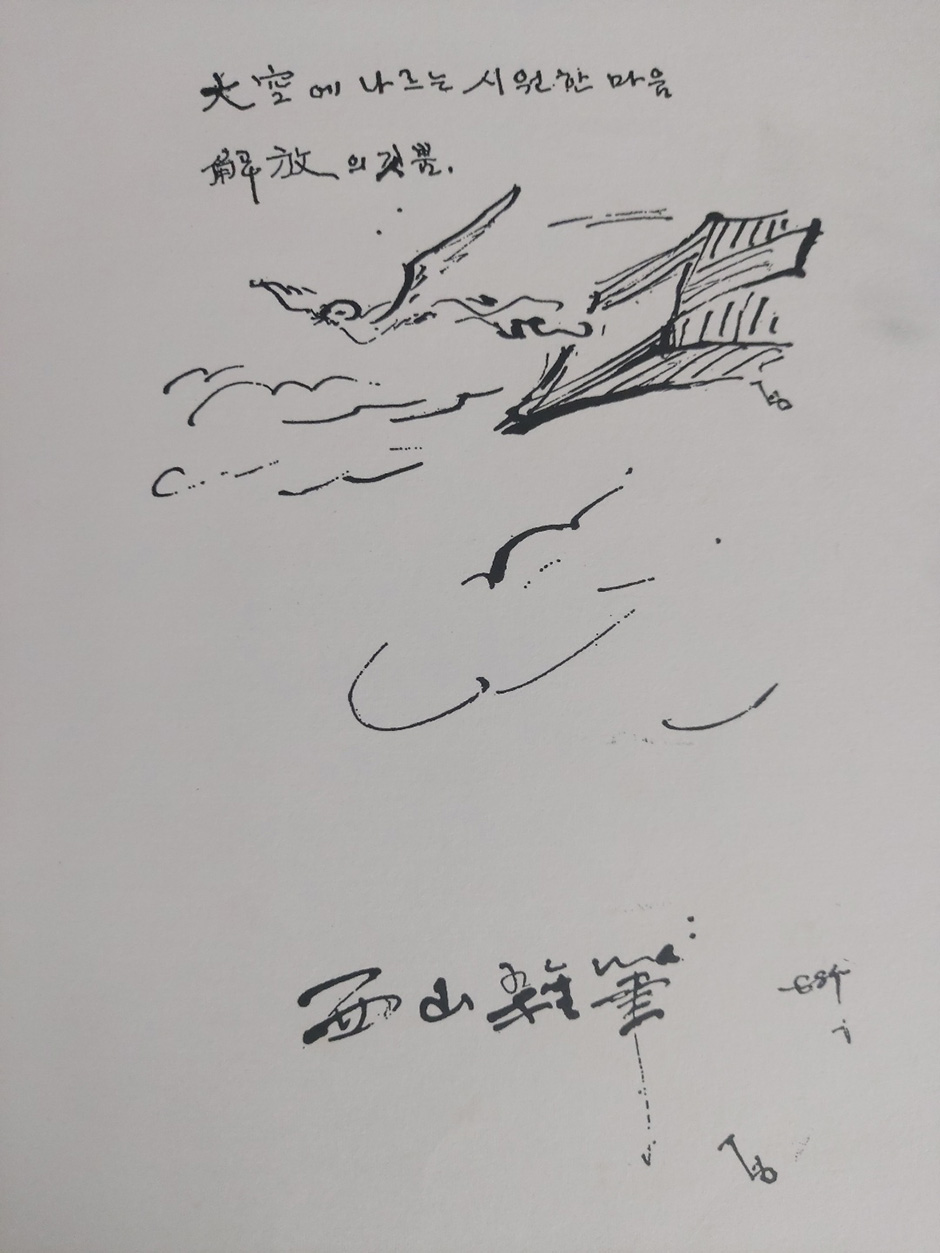 大空에 나르는 시원한 마음
解放의 기쁨.
西山雜筆